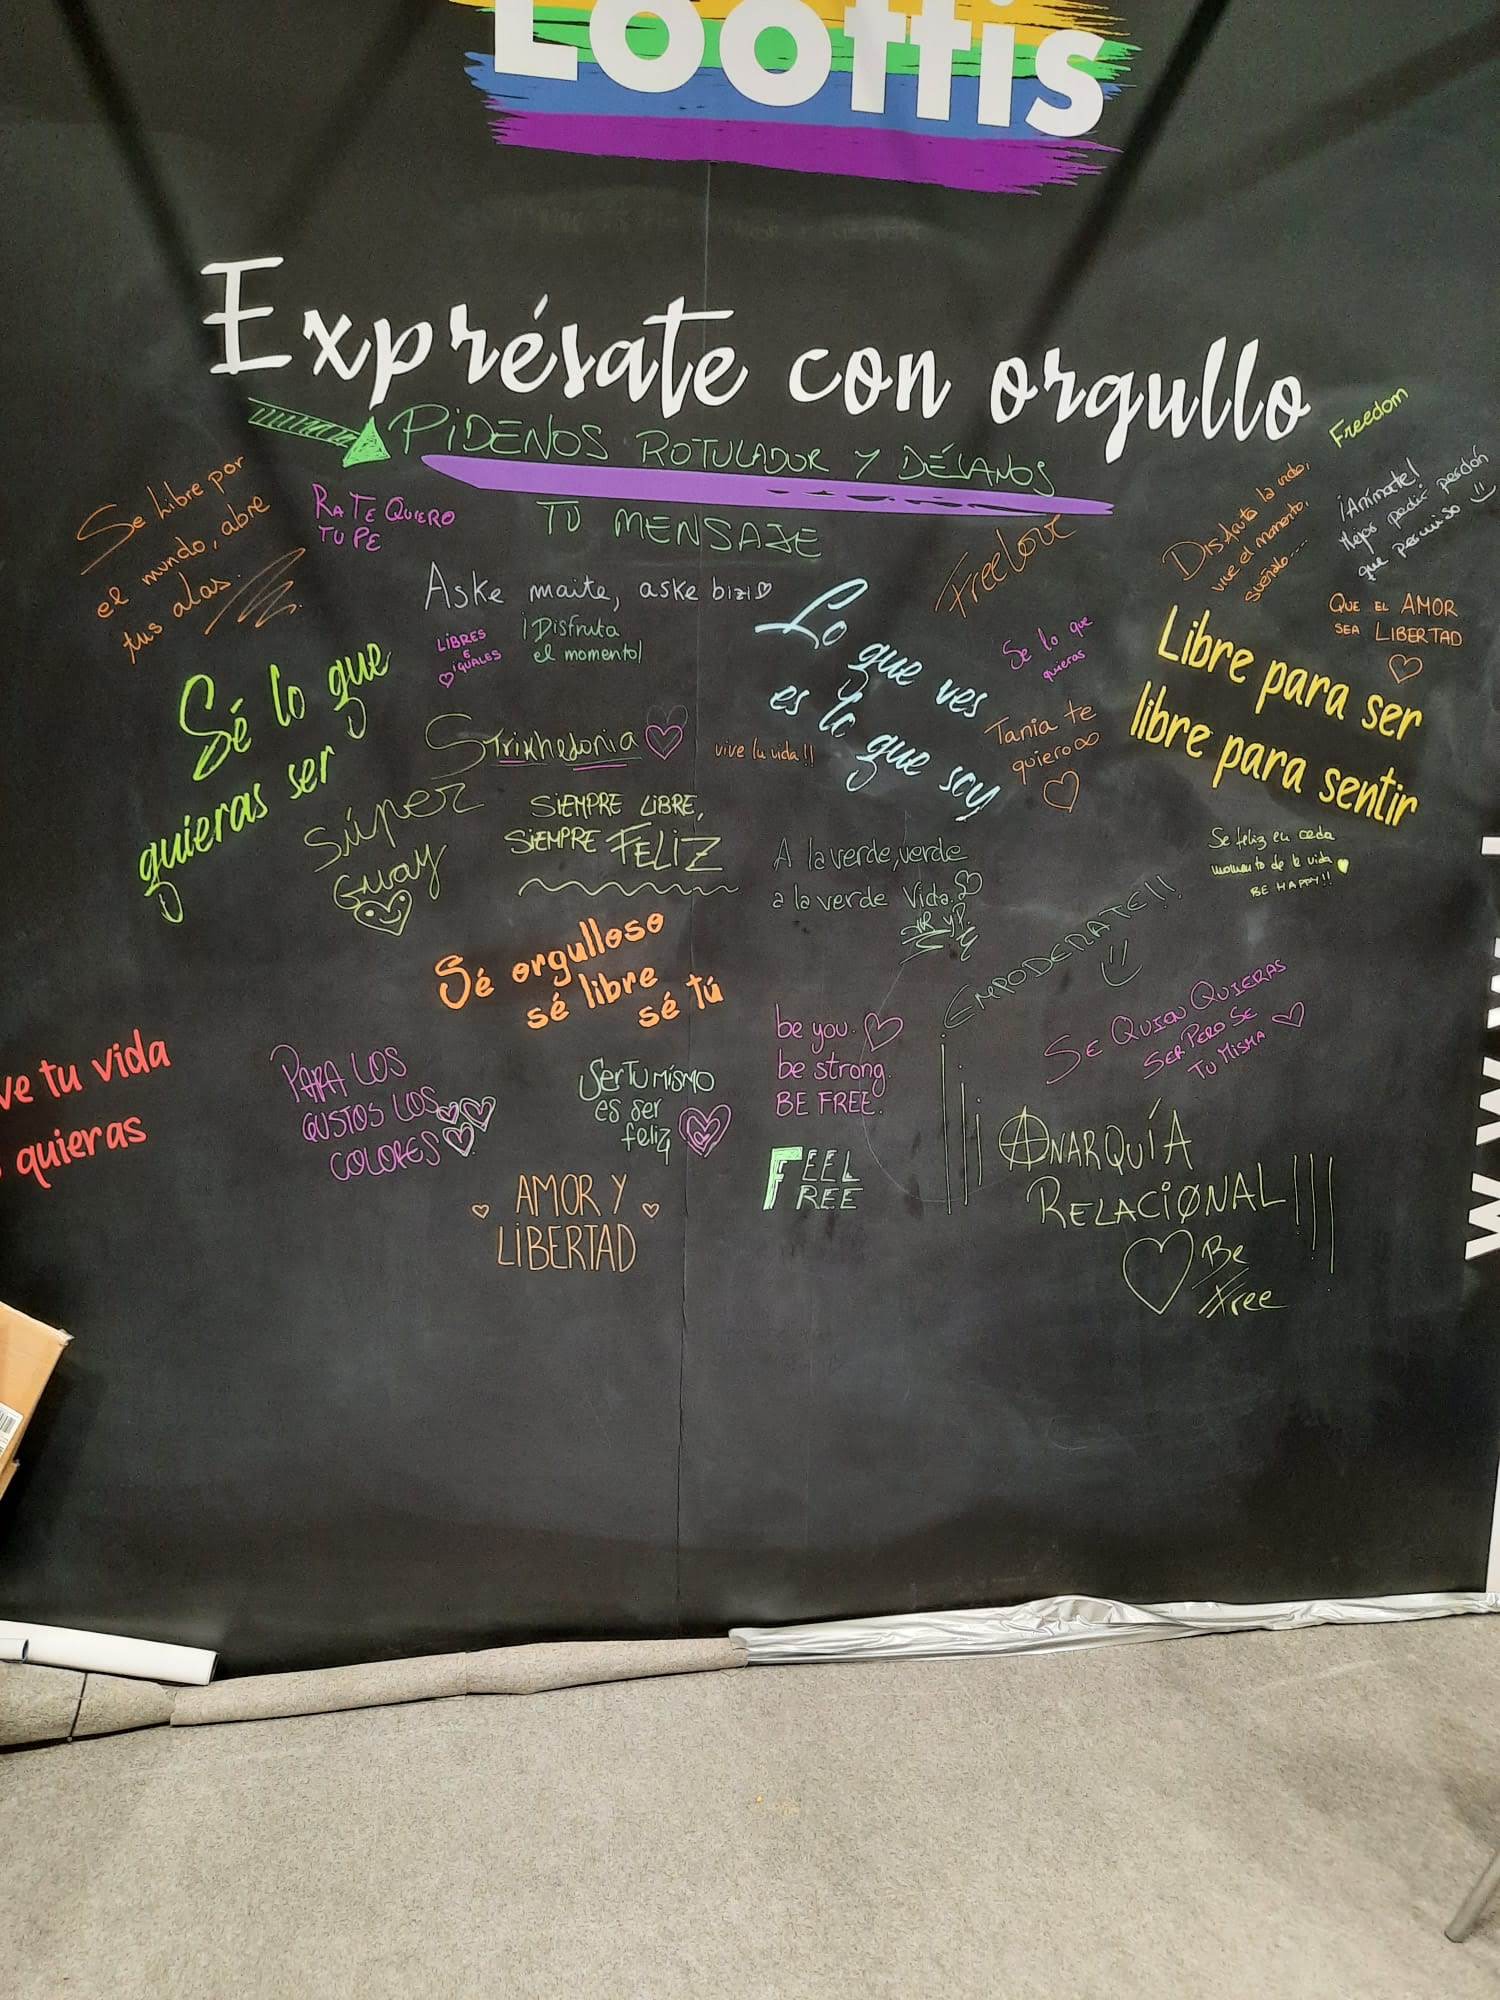 Loottis
Exprésate con orgullo
PIDENOS ROTULADOR Y DÉJANOS
TU MENSAJE
Freedom
Se libre por
el mundo, abre
tus alas.
RA TE QUIERO
TU PE
Aske maite, aske bizi
LIBRES
E
IGUALES
¡Disfruta
el momento!
FreeLove
Disfruta la vida,
vive el momento,
¡Anímate!
Mejor pedir perdón
que permiso
QUE EL AMOR
SEA LIBERTAD
Sé lo que
quieras ser
Lo que ves
es lo que soy
Se lo que
quieras
Libre para ser
libre para sentir
Strixhedonia
vive la vida!!
Tania te
quiero∞
Súper
Guay
SIEMPRE LIBRE,
SIEMPRE FELIZ
A la verde, verde
a la verde Vida.
Se feliz en cada
momento de la vida
BE HAPPY!!
¡EMPODERATE!!
Sé orgulloso
sé libre
sé tú
ve tu vida
quieras
PARA LOS
GUSTOS LOS
COLORES
SER TU MISMO
es ser
feliz
be you.
be strong.
BE FREE.
SE QUIEN QUIERAS
SER PERO SE
TU MISMA
FEEL
FREE
AMOR Y
LIBERTAD
¡¡¡ANARQUÍA
RELACIØNAL!!!
Be
Free
www.l